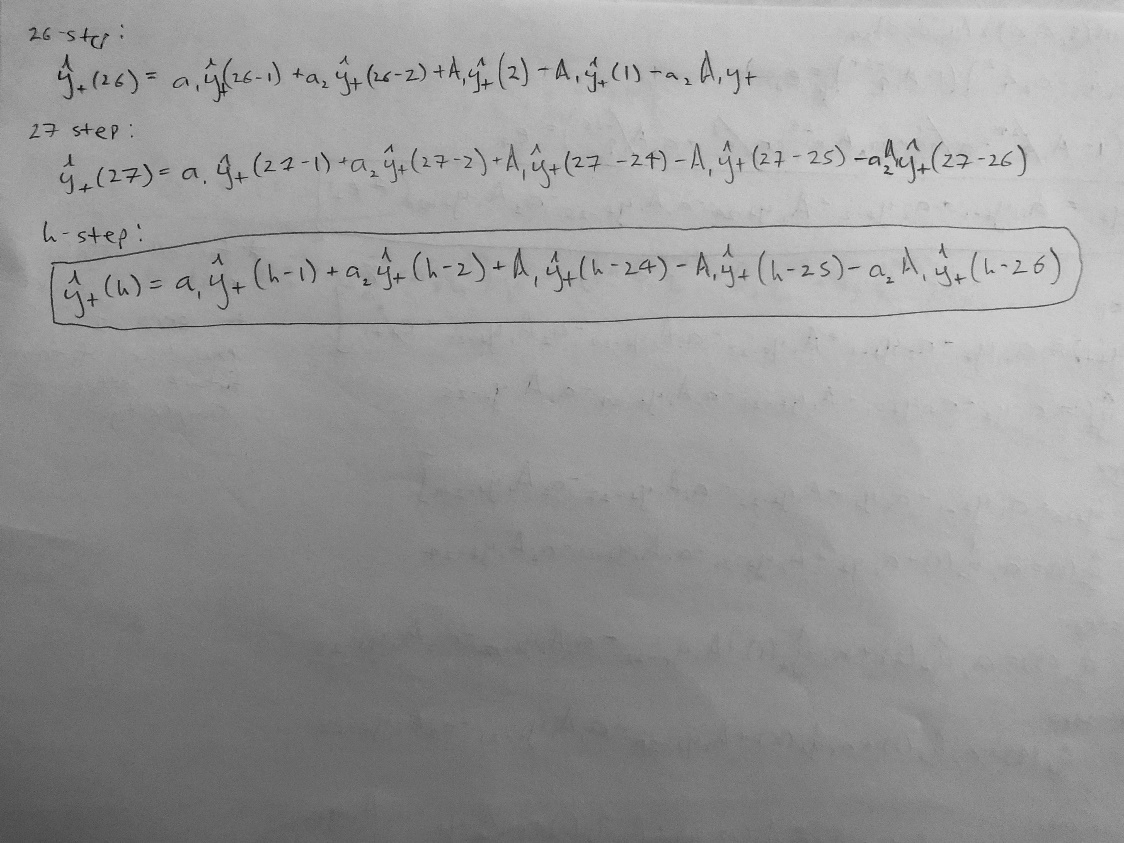 26-step:
ŷₜ(26) = a₁ŷₜ(26-1) + a₂ŷₜ(26-2) + A₁ŷₜ(2) - A₁ŷₜ(1) - a₂A₁yₜ
27 step:
ŷₜ(27) = a₁ŷₜ(27-1) + a₂ŷₜ(27-2) + A₁ŷₜ(27-24) - A₁ŷₜ(27-25) - a₂A₁ŷₜ(27-26)
h-step:
ŷₜ(h) = a₁ŷₜ(h-1) + a₂ŷₜ(h-2) + A₁ŷₜ(h-24) - A₁ŷₜ(h-25) - a₂A₁ŷₜ(h-26)